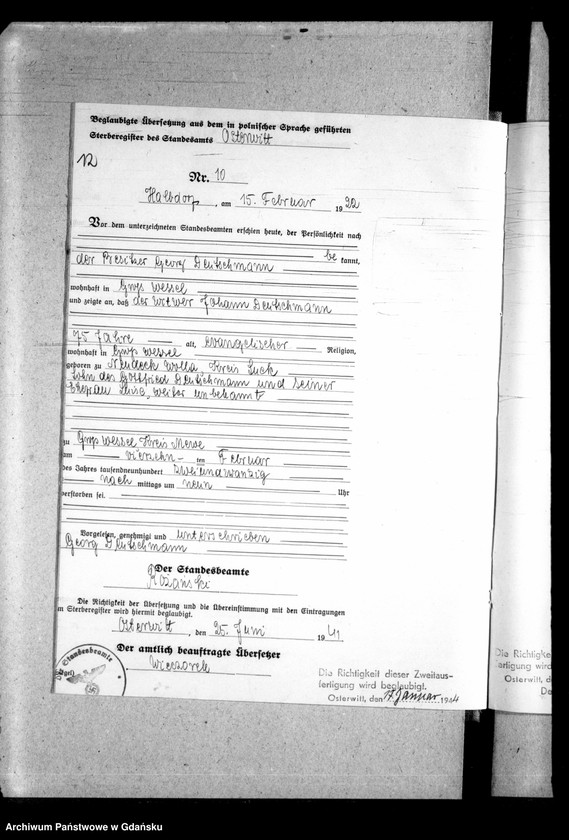 Beglaubigte Übersetzung aus dem in polnischer Sprache geführten
Sterberegister des Standesamts Osterwitt
12
Nr. 10
Halbdorf, am 15. Februar 1922
Vor dem unterzeichneten Standesbeamten erschien heute, der Persönlichkeit nach
be kannt,
der Besitzer Georg Deutschmann
wohnhaft in Groß Wessel
und zeigte an, daß der Witwer Johann Deutschmann
75 Jahre alt, evangelischer Religion,
wohnhaft in Groß Wessel
geboren zu Wolla, Kreis
Sohn des Gottfried Deutschmann und seiner
Ehefrau weiter unbekannt
zu Groß Wessel Kreis Mewe
am vierzehn ten Februar
des Jahres tausendneunhundert zweiundzwanzig
nach mittags um neun Uhr
verstorben sei.
Vorgelesen, genehmigt und unterschrieben
Georg Deutschmann
Der Standesbeamte
Die Richtigkeit der Übersetzung und die Übereinstimmung mit den Eintragungen
im Sterberegister wird hiermit beglaubigt.
Osterwitt, den 25. Juni 1941
Der amtlich beauftragte Übersetzer
Wieczorek
Standesbeamte
Die Richtigkeit dieser Zweitaus-
fertigung wird beglaubigt.
Osterwitt, den 17. Januar 1944
Die Richtigke
fertigung wird
Osterwitt, d
Archiwum Państwowe w Gdańsku